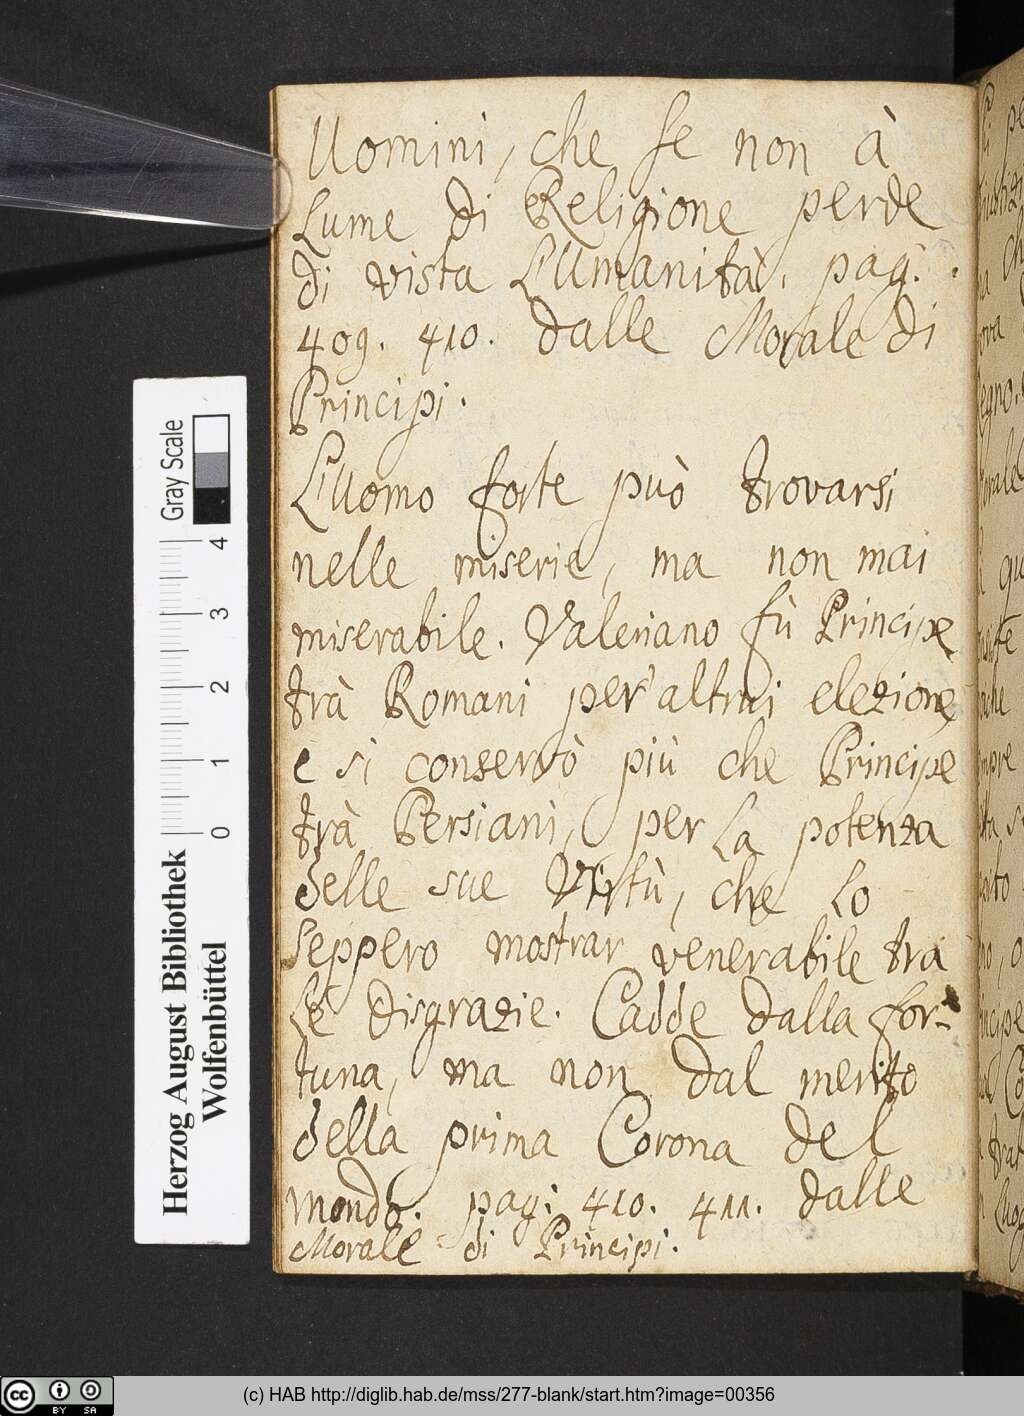 Uomini, che se non à
Lume di Religione perde
di vista L'Umanità. pag:
409. 410. dalle Morale di
Principi.
L'Uomo forte può trovarsi
nelle miserie, ma non mai
miserabile. Valeriano fù Principe
trà Romani per altrui elezione
e si conservò più che Principe
trà Persiani, per La potenza
delle sue Virtù, che Lo
seppero mostrar venerabile tra
Le disgrazie. Cadde dalla for-
tuna, ma non dal merito
della prima Corona del
mondo. pag: 410. 411. dalle
Morale di Principi.
Gray Scale
0 1 2 3 4
Herzog August Bibliothek
Wolfenbüttel
cc BY SA
(c) HAB http://diglib.hab.de/mss/277-blank/start.htm?image=00356